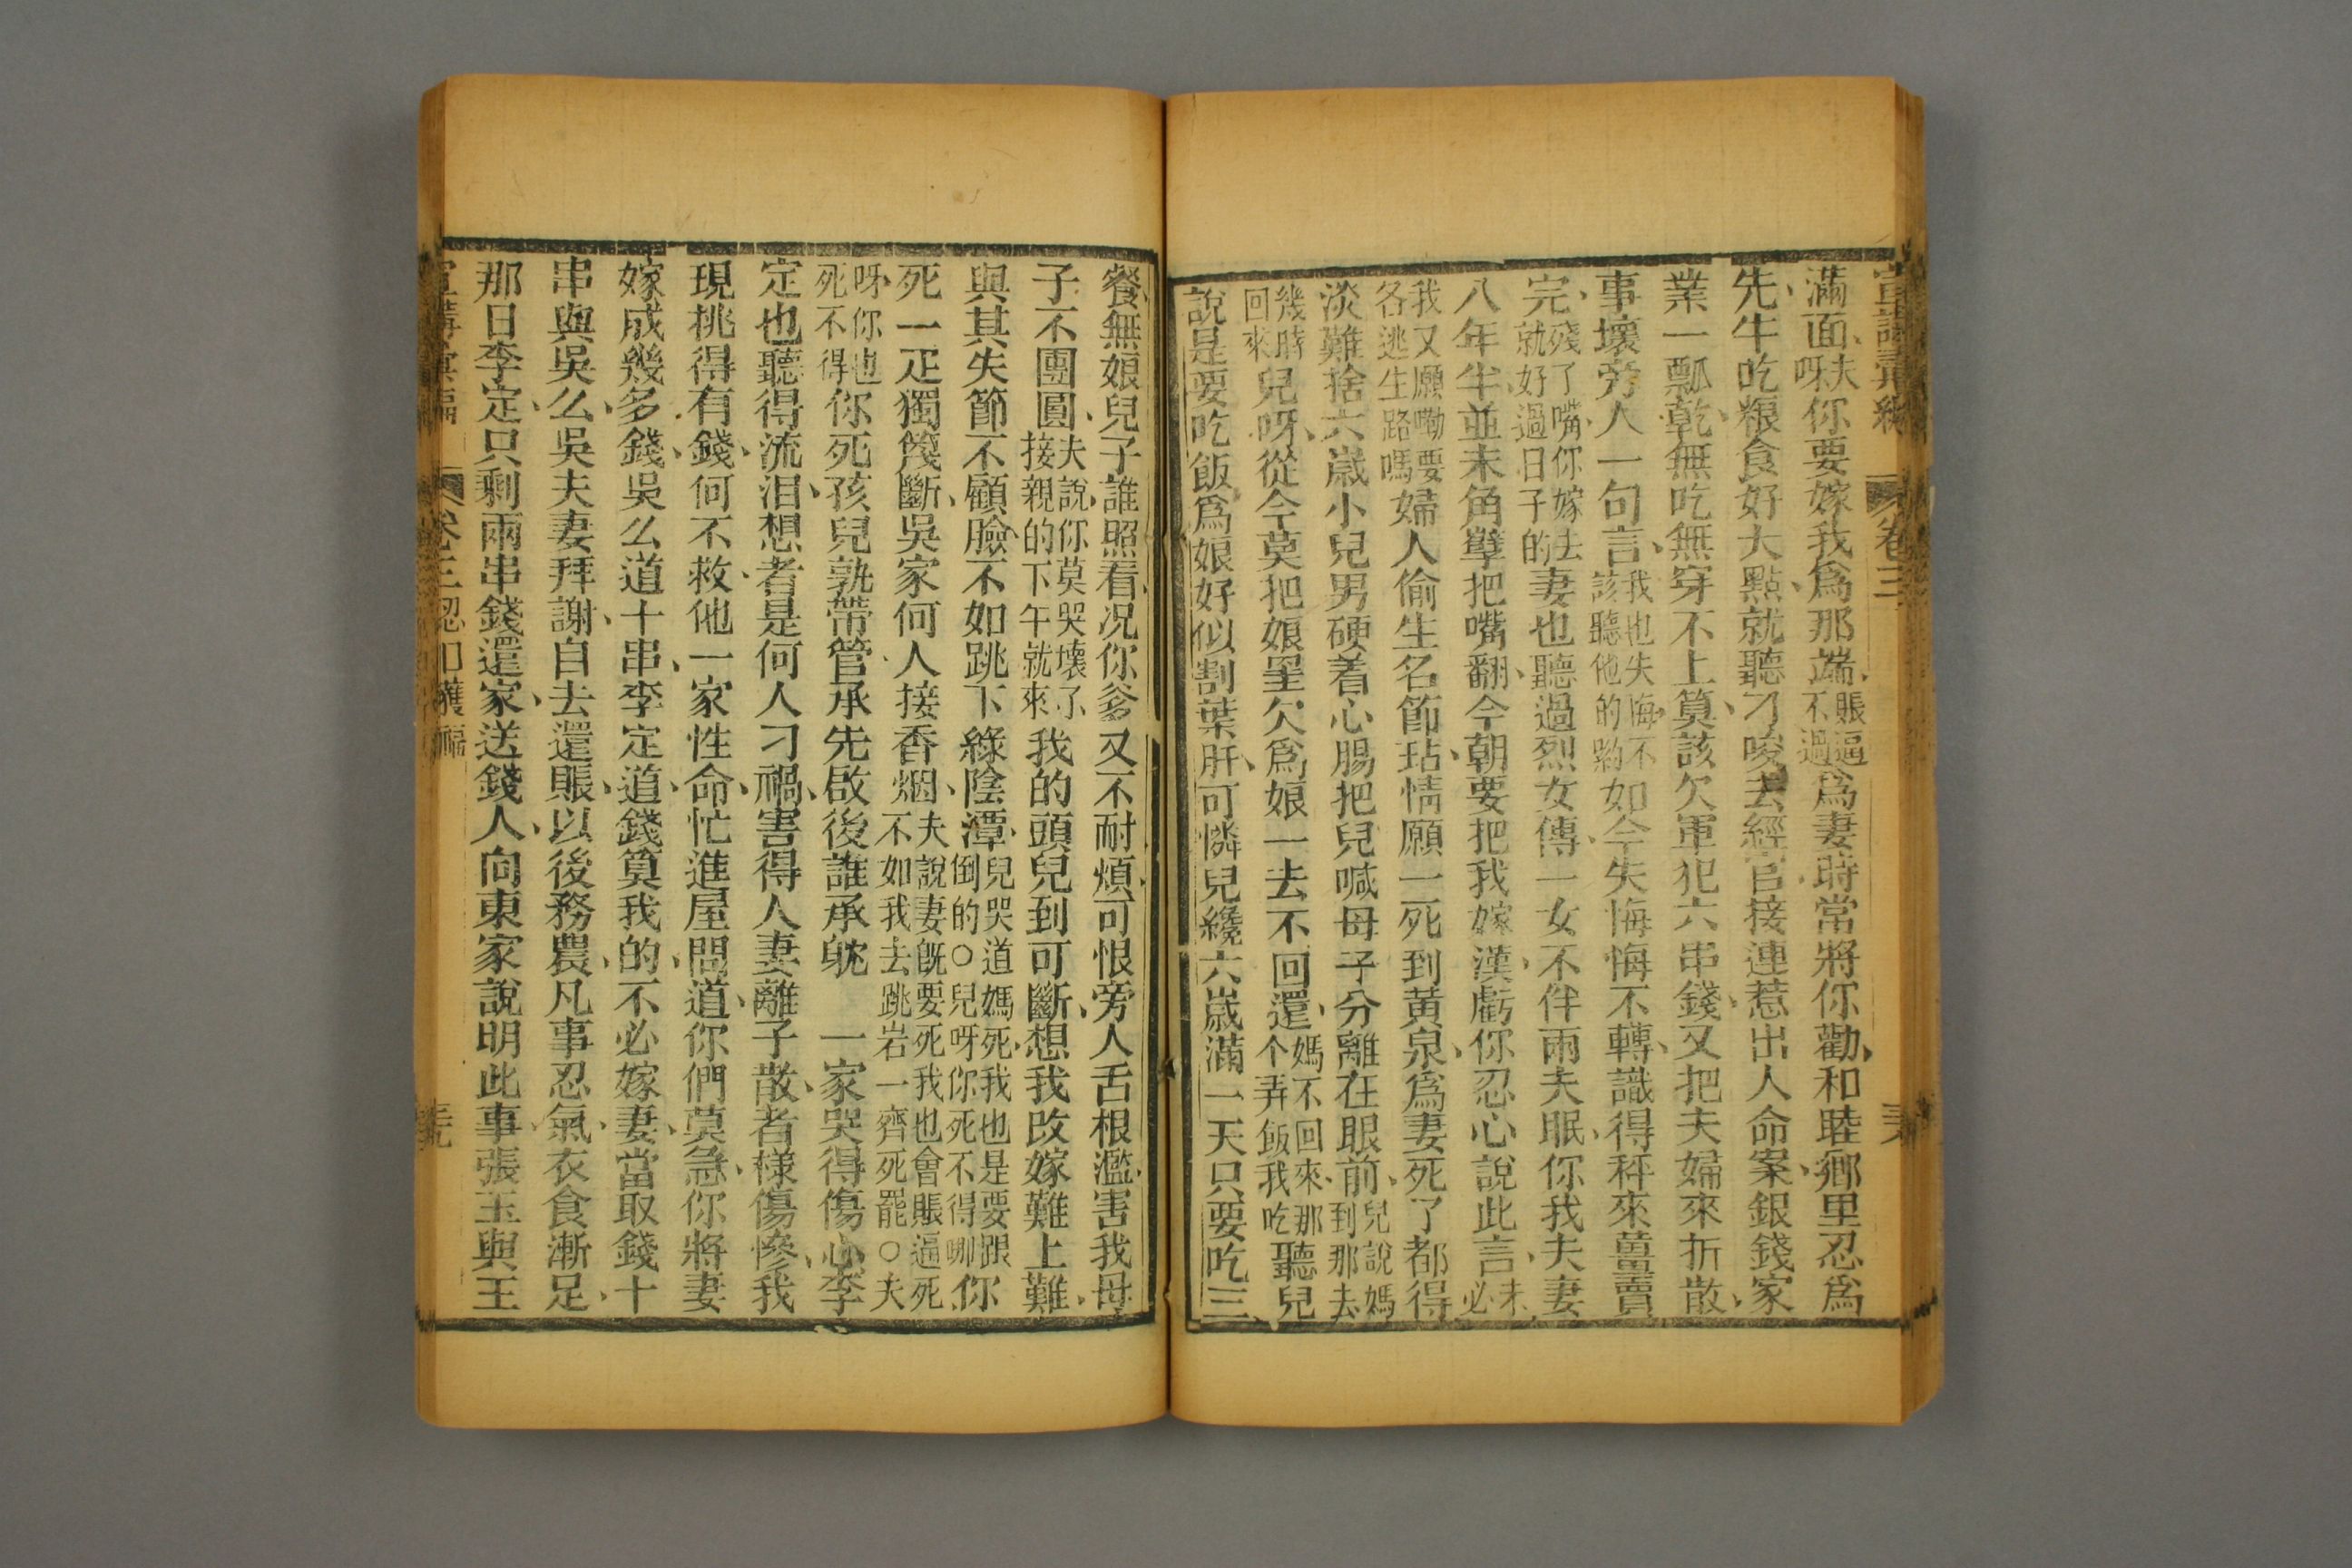 卷三
滿面夫呀你要嫁我爲那端賬逼不過爲妻時常將你勸和睦鄉里忍爲
先牛吃粮食好大點就聽刁唆去經官接連惹出人命案銀錢家
業一瓢乾無吃無穿不上算該欠軍犯六串錢又把夫婦來折散
事壞旁人一句言我也失悔不該聽他的喲如今失悔悔不轉識得秤來薑賣
完殘了嘴你嫁去就好過日子的妻也聽過烈女傳一女不伴兩夫眠你我夫妻
八年半並未角孽把嘴翻今朝要把我嫁漢虧你忍心說此言未必
我又願嘞要各逃生路嗎婦人偷生名節玷情願一死到黃泉爲妻死了都得
淡難捨六歲小兒男硬着心腸把兒喊母子分離在眼前兒說媽到那去
幾時回來兒呀從今莫把娘望欠爲娘一去不回還媽不回來那个弄飯我吃聽兒
說是要吃飯爲娘好似割葉肝可憐兒纔六歲滿一天只要吃三
餐無娘兒子誰照看况你爹又不耐煩可恨旁人舌根濫害我母
子不團圓夫說你莫哭壞了接親的下午就來我的頭兒到可斷想我改嫁難上難
與其失節不顧臉不如跳下綠陰潭兒哭道媽死我也是要跟倒的○兒呀你死不得嘞你
死一疋獨篾斷吳家何人接香烟夫說妻旣要死我也會賬逼死不如我去跳岩一齊死罷○夫
呀你也死不得你死孩兒孰帶管承先啟後誰承躭　一家哭得傷心李
定也聽得流泪想者是何人刁禍害得人妻離子散者樣傷慘我
現挑得有錢何不救他一家性命忙進屋問道你們莫急你將妻
嫁成幾多錢吳么道十串李定道錢算我的不必嫁妻當取錢十
串與吳么吳夫妻拜謝自去還賬以後務農凡事忍氣衣食漸足
那日李定只剩兩串錢還家送錢人向東家說明此事張玉與王
卷三